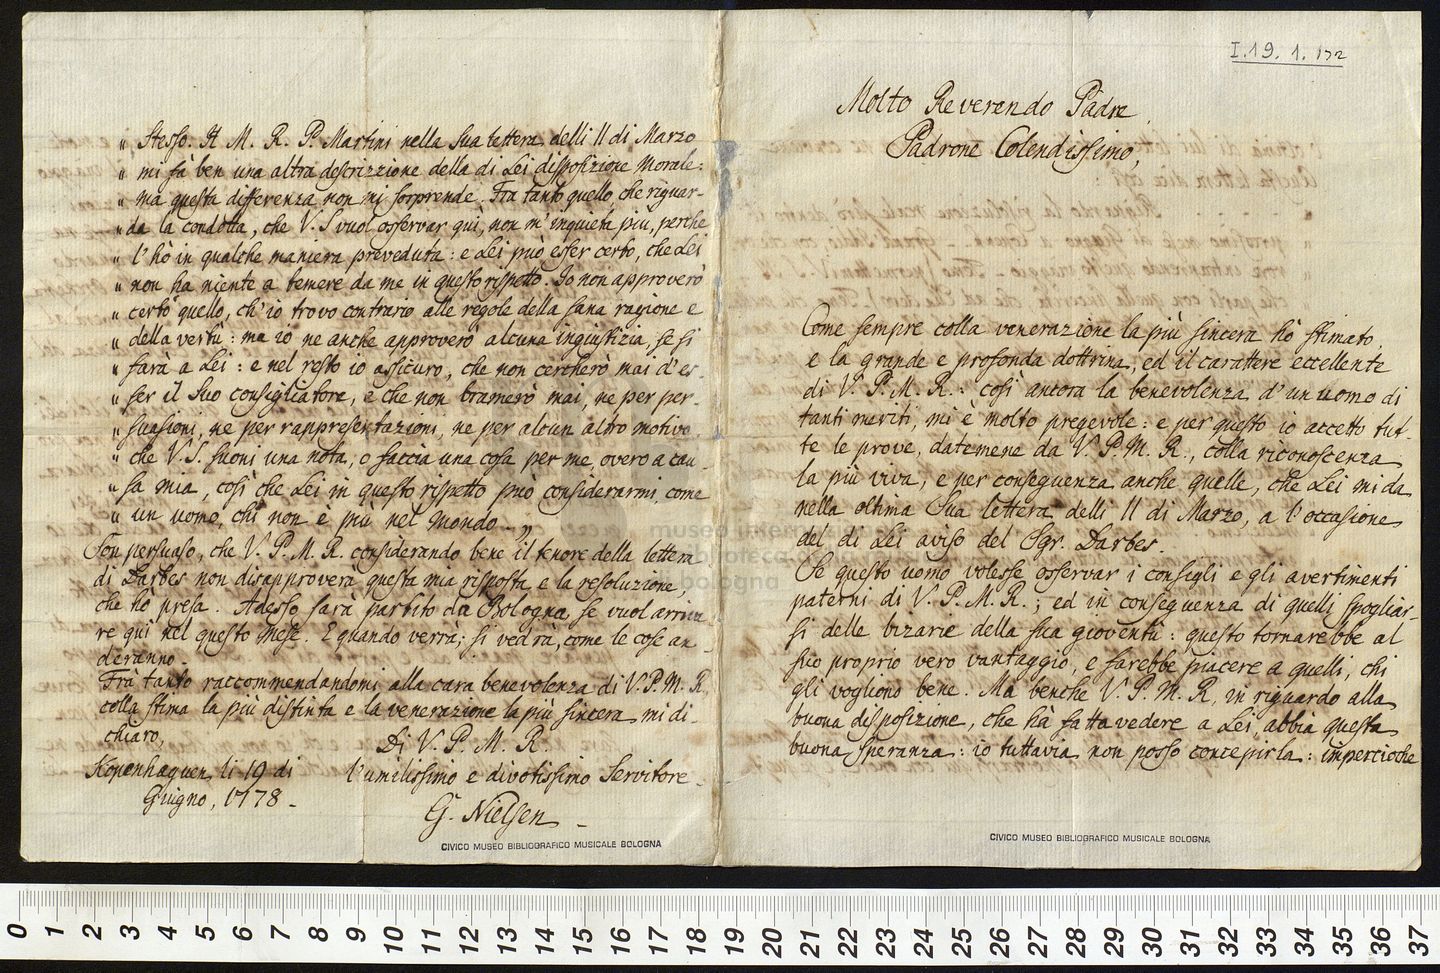 I.19.1.172
Molto Reverendo Padre
Padrone Colendissimo,
Come sempre colla venerazione la più sincera hò stimato
e la grande e profonda dottrina, ed il carattere eccellente
di V. P. M. R.: così ancora la benevolenza d'un uomo di
tanti meriti, mi è molto pregevole: e per questo io accetto tut-
te le prove, datemene da V. P. M. R., colla riconoscenza
la più viva, e per conseguenza anche quelle, che Lei mi da
nella oltima Sua lettera delli 11 di Marzo, a l'occasione
del di Lei aviso del Sgr. Darbes.
Se questo uomo volesse osservar i consigli e gli avertimenti
paterni di V. P. M. R.; ed in conseguenza di quelli spogliar-
si delle bizarie della sua gioventù: questo tornarebbe al
suo proprio vero vantaggio, e farebbe piacere a quelli, chi
gli vogliono bene. Ma benche V. P. M. R. in riguardo alla
buona disposizione, che hà fatta vedere a Lei, abbia questa
buona speranza: io tuttavia non posso concepirla: impercioche
" stesso. Il M. R. P. Martini nella sua lettera delli 11 di Marzo
" mi fà ben una altra descrizzione della di Lei disposizione morale:
" ma questa differenza non mi sorprende. Fra tanto quello, che riguar-
" da la condotta, che V. S vuol osservar quì, non m'inquieta piu, perche
" l'hò in qualche maniera preveduta: e Lei può esser certo, che Lei
" non ha niente a temere da me in questo rispetto. Io non approverò
" certo quello, ch'io trovo contrario alle regole della sana ragione e
" della vertù: ma io ne anche approverò alcuna ingiustizia, se si
" farà a Lei: e nel resto io assicuro, che non cercherò mai d'es-
" ser il Suo consigliatore, e che non bramerò mai, ne per per-
" suasioni, ne per rappresentazioni, ne per alcun altro motivo,
" che V. S. suoni una nota, o faccia una cosa per me, overo a cau-
" sa mia, così che Lei in questo rispetto può considerarmi, come
" un uomo, chi non è più nel mondo - „
Son persuaso, che V. P. M. R. considerando bene il tenore della lettera
di Darbes non disapproverà questa mia risposta e la resoluzione,
che hò presa. Adesso sarà partito da Bologna, se vuol arriva
re quì nel questo mese. E quando verrà; si vedra, come le cose an-
deranno.
Frà tanto raccommendandomi alla cara benevolenza di V. P. M. R.
colla stima la più distinta e la venerazione la più sincera mi di-
chiaro,
Di V. P. M. R.
Kopenhaguen li 19 di
Giugno, 1778 -
l'umilissimo e divotissimo Servitore
G. Nielsen
CIVICO MUSEO BIBLIOGRAFICO MUSICALE BOLOGNA
CIVICO MUSEO BIBLIOGRAFICO MUSICALE BOLOGNA
museo internazionale
biblioteca della
bologna
0 1 2 3 4 5 6 7 8 9 10 11 12 13 14 15 16 17 18 19 20 21 22 23 24 25 26 27 28 29 30 31 32 33 34 35 36 37